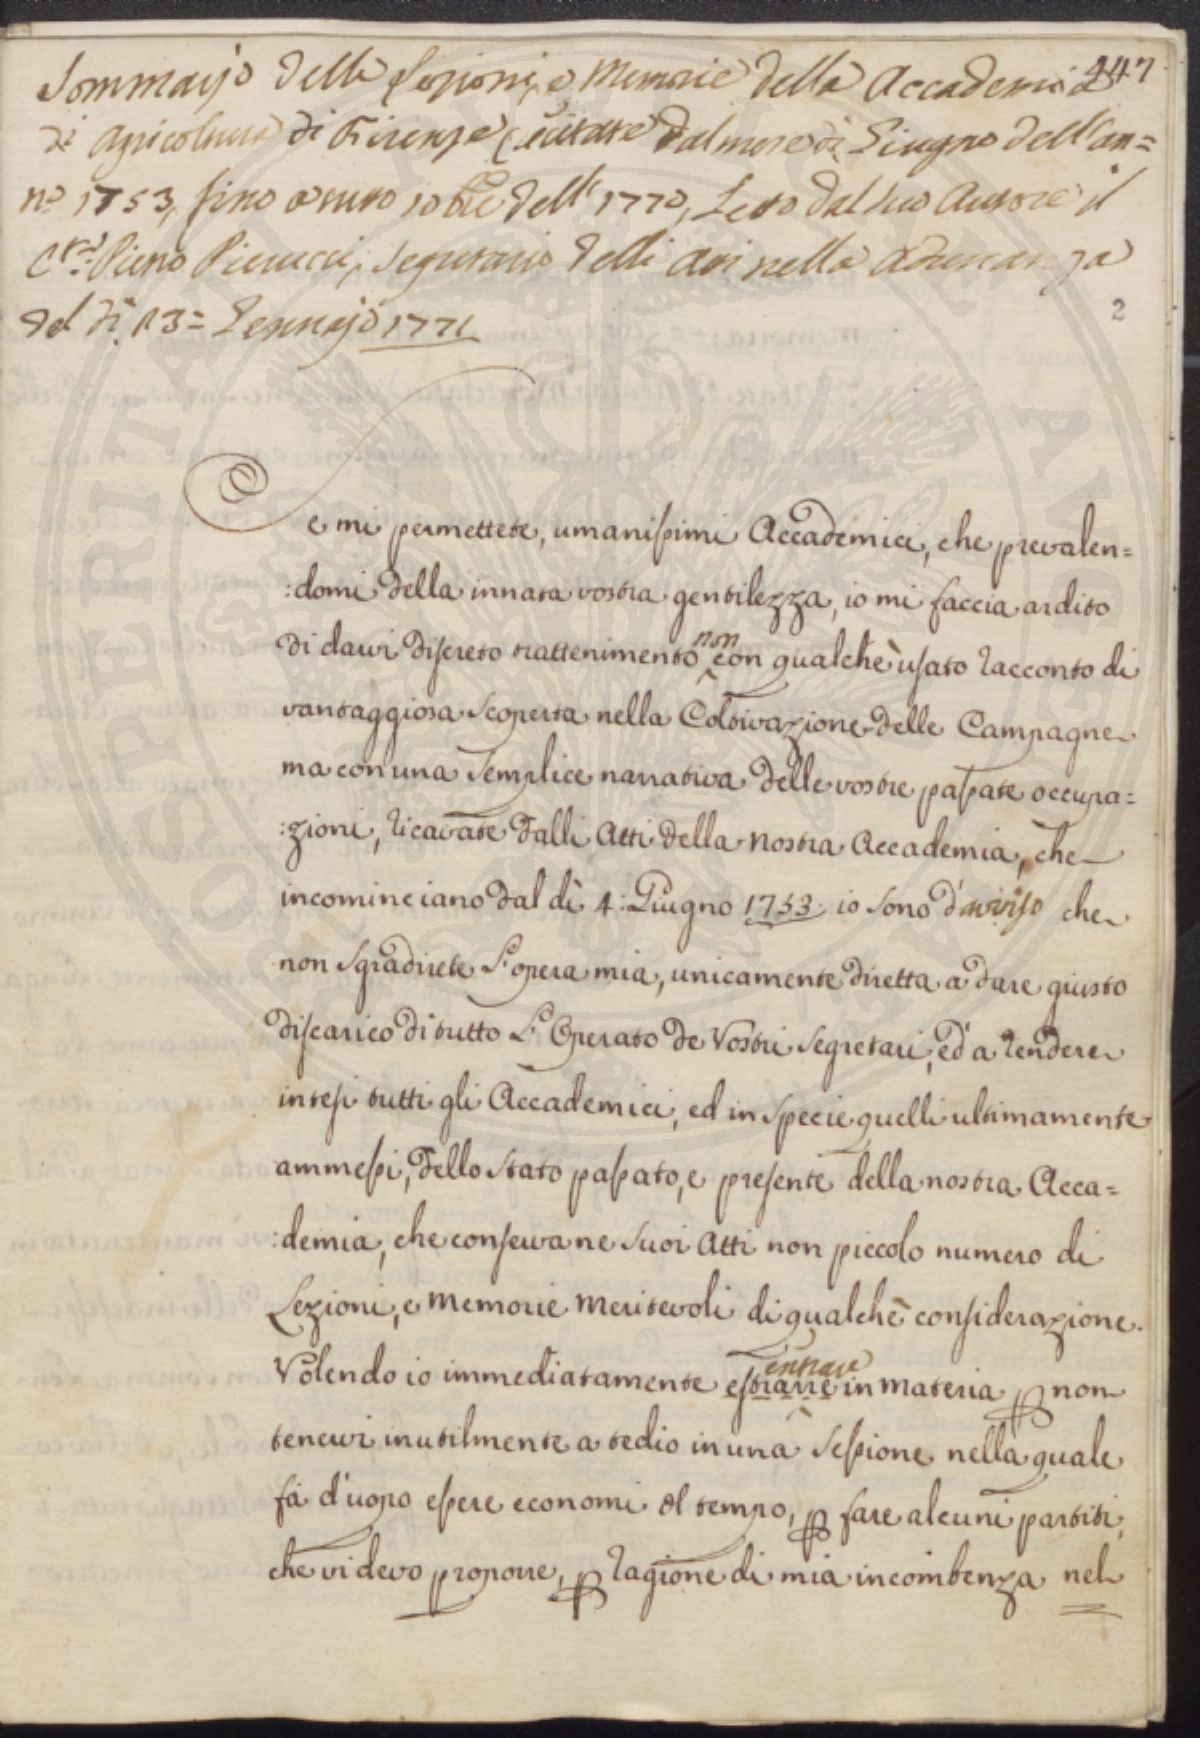 Sommario delle Lezioni, e Memorie della Accademia 247
di Agricoltura di Firenze recitate dal mese di Giugno dell'an=
no 1753, fino a tutto 10bre dell' 1770, Letto dal suo Autore il
Piero Pierucci, Segretario delli Atti nella Adunanza
del dì 23= Gennajo 1771
2
Se mi permettete, umanissimi Accademici, che prevalen=
:domi della innata vostra gentilezza, io mi faccia ardito
di darvi discreto trattenimento non con qualche usato racconto di
vantaggiosa scoperta nella Coltivazione delle Campagne
ma con una semplice narrativa delle vostre passate occupa=
:zioni, ricavate dalli Atti della nostra Accademia, che
incominciano dal dì 4: Giugno 1753: io sono d'avviso che
non sgradirete l'opera mia, unicamente diretta a dare giusto
discarico di tutto l'Operato de Vostri Segretari, ed a rendere
intesi tutti gli Accademici, ed in specie quelli ultimamente
ammessi, dello stato passato, e presente della nostra Acca=
:demia, che conserva ne suoi Atti non piccolo numero di
Lezioni, e Memorie meritevoli di qualche considerazione.
Volendo io immediatamente estrarre entrare in materia p non
tenervi inutilmente a tedio in una Sessione nella quale
fà d'uopo essere economi del tempo, p fare alcuni partiti,
che vi devo proporre, p ragione di mia incombenza nel